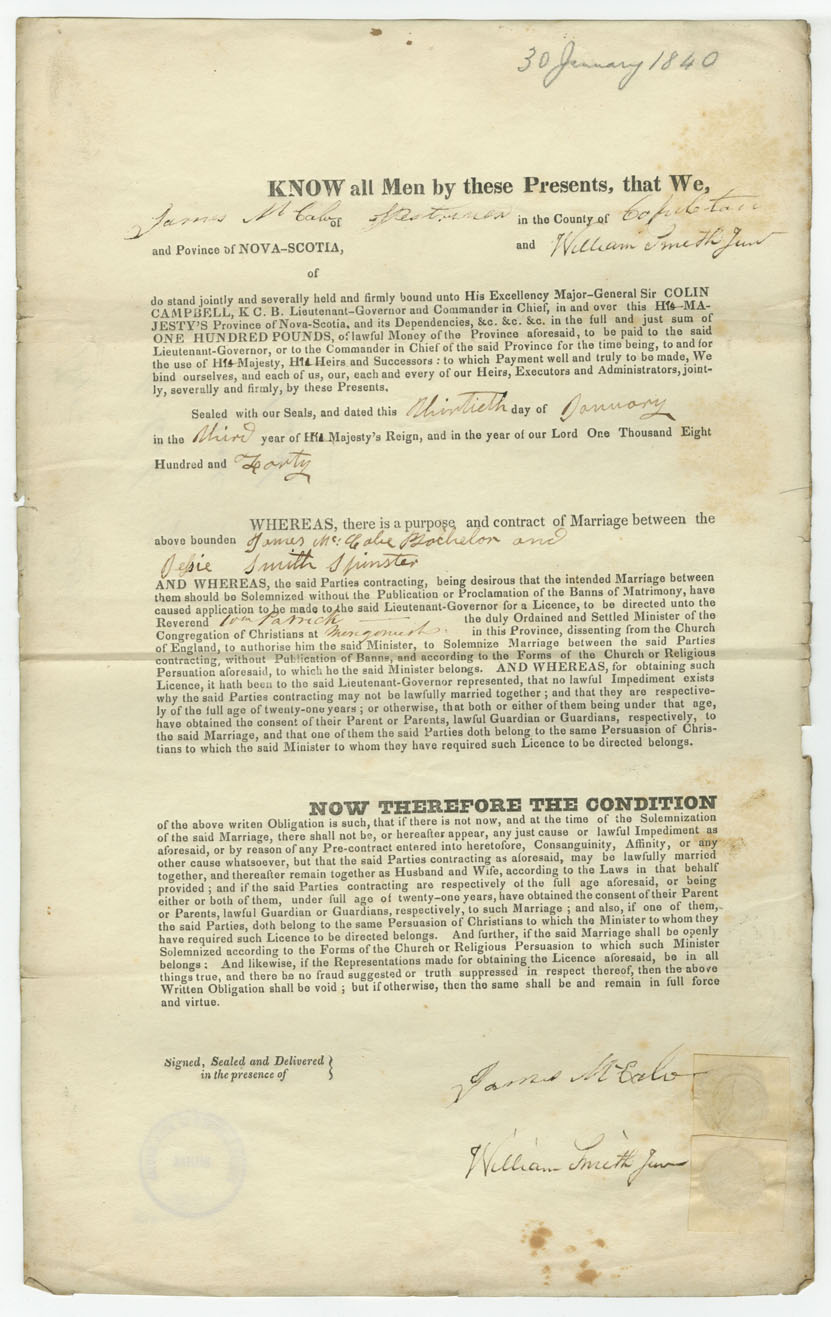 30 January 1840
KNOW all Men by these Presents, that We,
James McCabe of in the County of
and Povince of NOVA-SCOTIA, and William Smith Junr
of
do stand jointly and severally held and firmly bound unto His Excellency Major-General Sir COLIN
CAMPBELL, K C. B. Lieutenant-Governor and Commander in Chief, in and over this His MA-
JESTY'S Province of Nova-Scotia, and its Dependencies, &c. &c. &c. in the full and just sum of
ONE HUNDRED POUNDS, of lawful Money of the Province aforesaid, to be paid to the said
Lieutenant-Governor, or to the Commander in Chief of the said Province for the time being, to and for
the use of His Majesty, His Heirs and Successors: to which Payment well and truly to be made, We
bind ourselves, and each of us, our, each and every of our Heirs, Executors and Administrators, joint-
ly, severally and firmly, by these Presents.
Sealed with our Seals, and dated this Thirtieth day of January
in the Third year of His Majesty's Reign, and in the year of our Lord One Thousand Eight
Hundred and Forty
WHEREAS, there is a purpose, and contract of Marriage between the
above bounden James McCabe Bachelor and
Jessie Smith Spinster
AND WHEREAS, the said Parties contracting, being desirous that the intended Marriage between
them should be Solemnized without the Publication or Proclamation of the Banns of Matrimony, have
caused application to be made to the said Lieutenant-Governor for a Licence, to be directed unto the
Reverend Patrick the duly Ordained and Settled Minister of the
Congregation of Christians at in this Province, dissenting from the Church
of England, to authorise him the said Minister, to Solemnize Marriage between the said Parties
contracting, without Publication of Banns, and according to the Forms of the Church or Religious
Persuation aforesaid, to which he the said Minister belongs. AND WHEREAS, for obtaining such
Licence, it hath been to the said Lieutenant-Governor represented, that no lawful Impediment exists
why the said Parties contracting may not be lawfully married together; and that they are respective-
ly of the full age of twenty-one years; or otherwise, that both or either of them being under that age,
have obtained the consent of their Parent or Parents, lawful Guardian or Guardians, respectively, to
the said Marriage, and that one of them the said Parties doth belong to the same Persuasion of Chris-
tians to which the said Minister to whom they have required such Licence to be directed belongs.
NOW THEREFORE THE CONDITION
of the above writen Obligation is such, that if there is not now, and at the time of the Solemnization
of the said Marriage, there shall not be, or hereafter appear, any just cause or lawful Impediment as
aforesaid, or by reason of any Pre-contract entered into heretofore, Consanguinity, Affinity, or any
other cause whatsoever, but that the said Parties contracting as aforesaid, may be lawfully married
together, and thereafter remain together as Husband and Wife, according to the Laws in that behalf
provided; and if the said Parties contracting are respectively of the full age aforesaid, or being
either or both of them, under full age of twenty-one years, have obtained the consent of their Parent
or Parents, lawful Guardian or Guardians, respectively, to such Marriage; and also, if one of them,
the said Parties, doth belong to the same Persuasion of Christians to which the Minister to whom they
have required such Licence to be directed belongs. And further, if the said Marriage shall be openly
Solemnized according to the Forms of the Church or Religious Persuasion to which such Minister
belongs: And likewise, if the Representations made for obtaining the Licence aforesaid, be in all
things true, and there be no fraud suggested or truth suppressed in respect thereof, then the above
Written Obligation shall be void; but if otherwise, then the same shall be and remain in full force
and virtue.
Signed, Sealed and Delivered
in the presence of
James McCabe
William Smith Junr